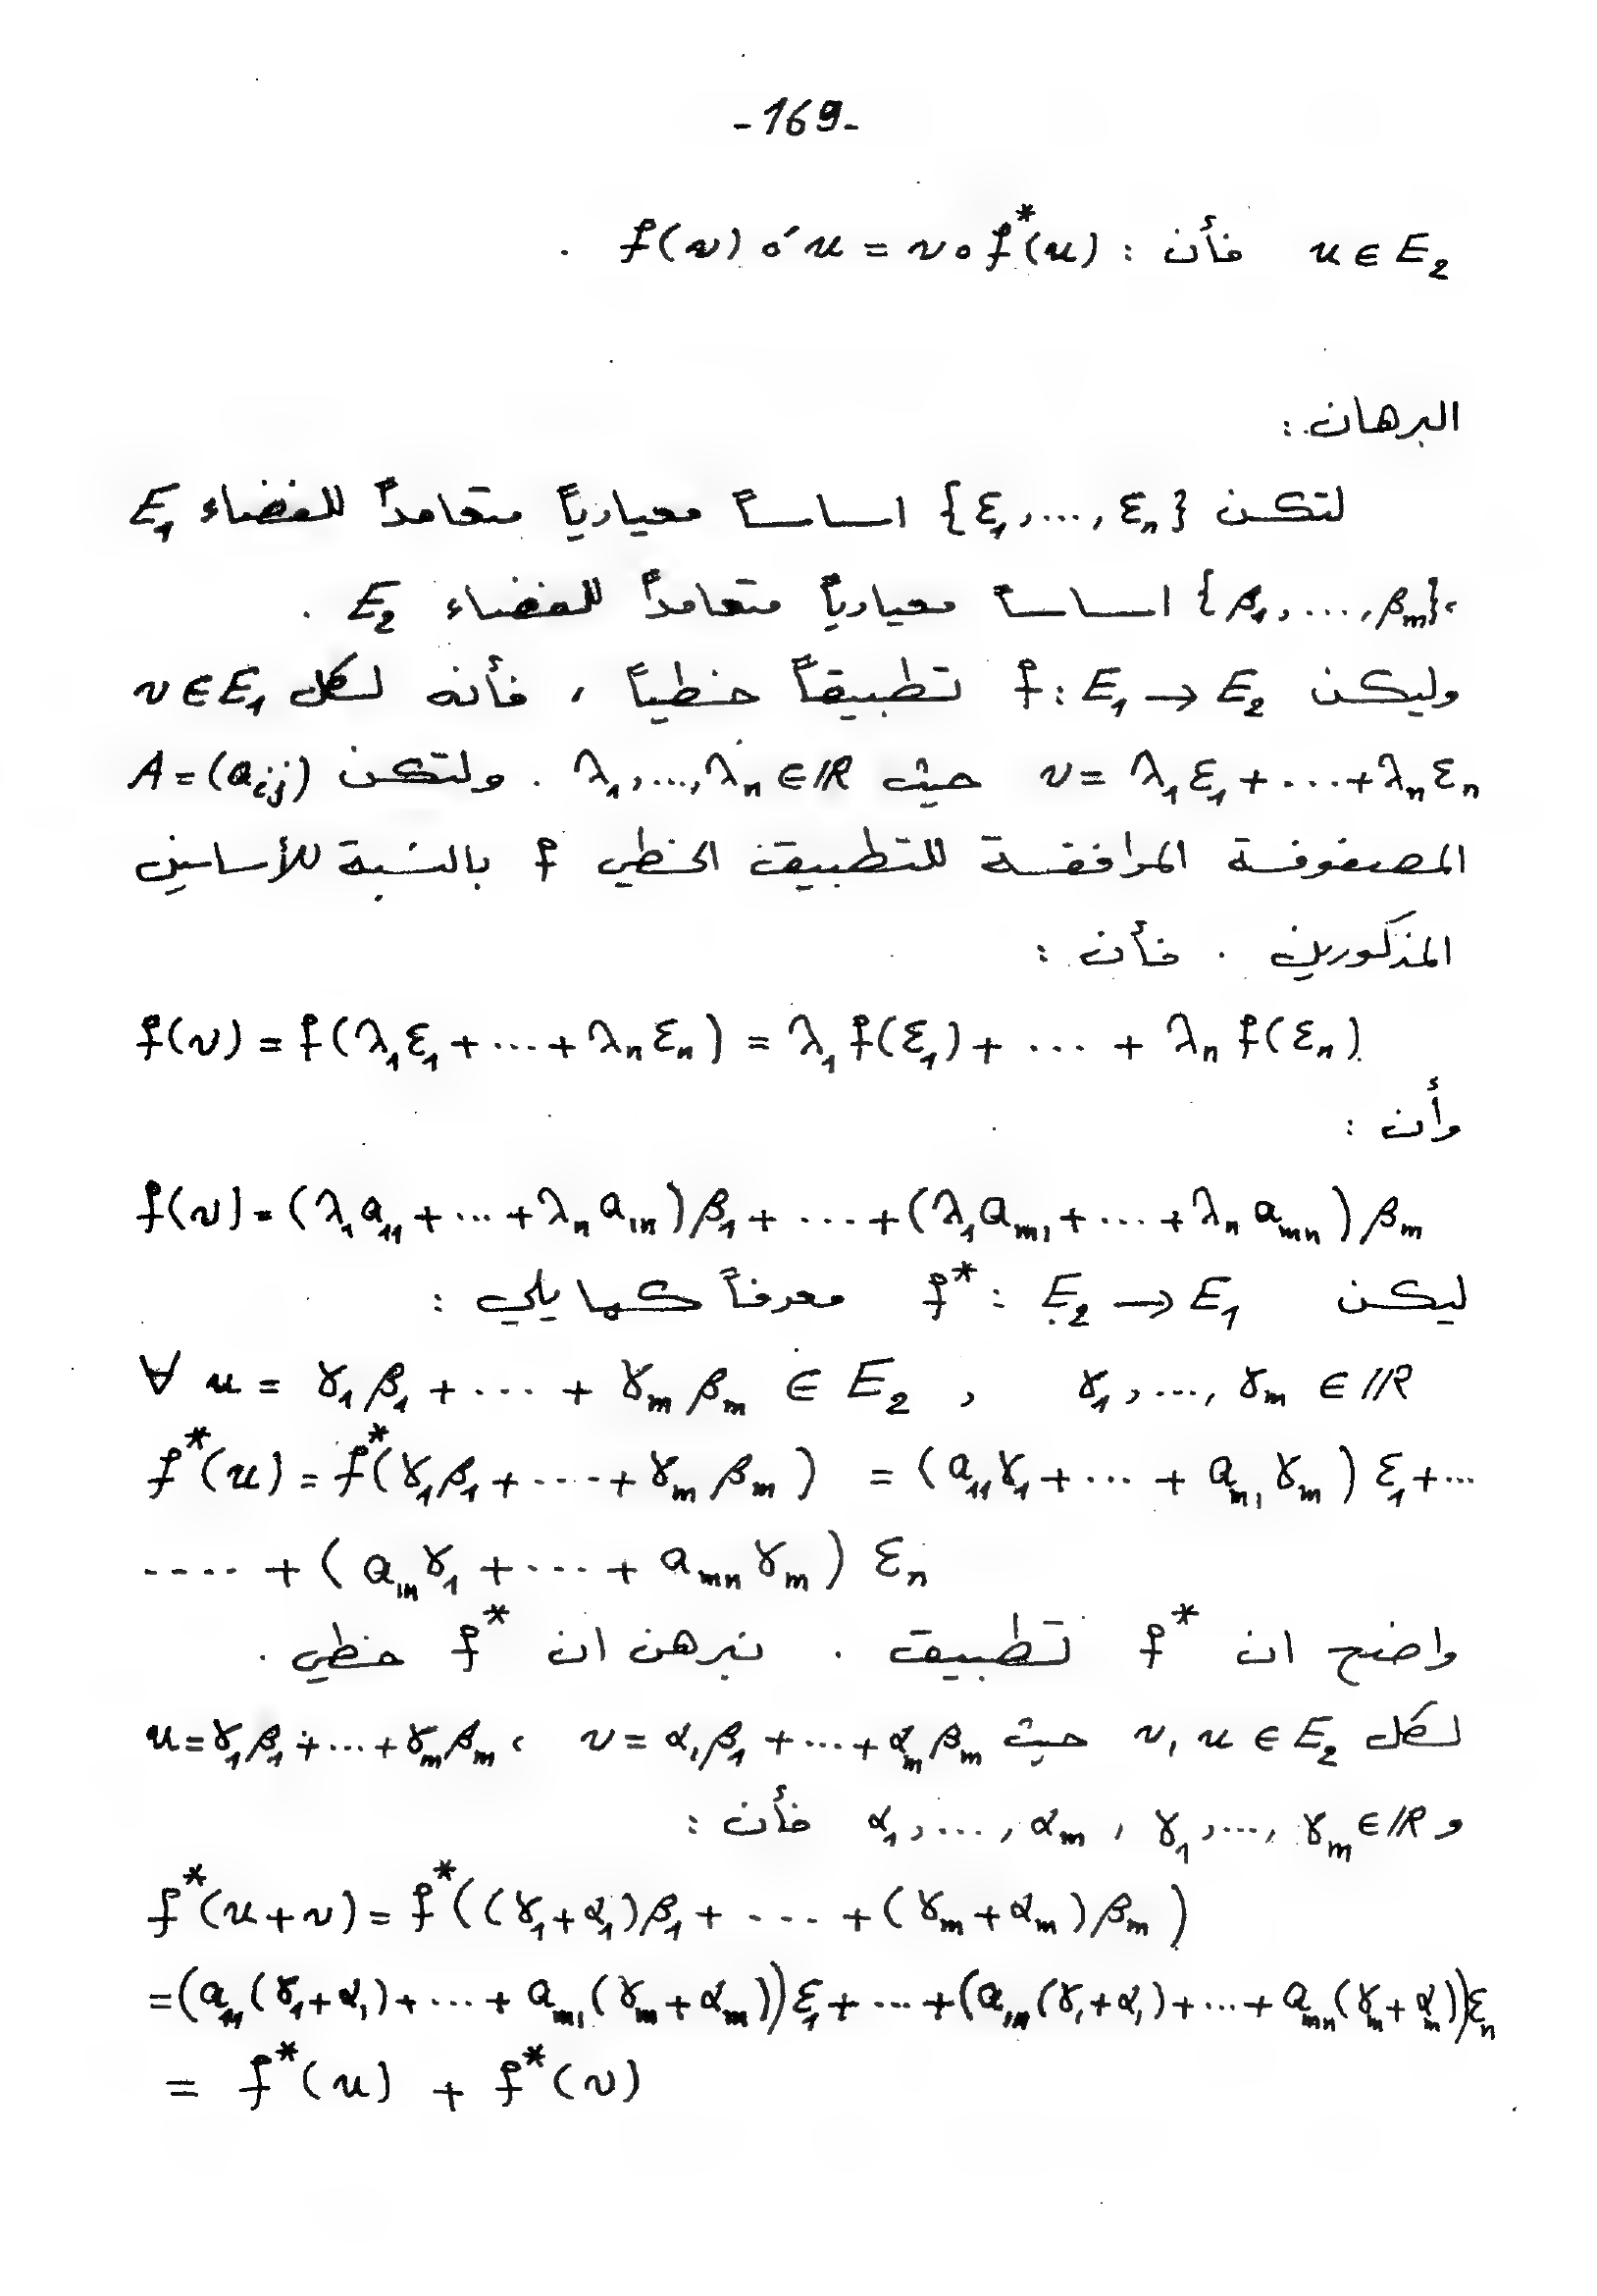 -169-
u ∈ E₂ فأن : f(v) o' u = v o f*(u) .
البرهان :
لتكن {ε₁,...,εₙ} اساساً معيارياً متعامداً للفضاء E₁
، {β₁,...,βₘ} اساساً معيارياً متعامداً للفضاء E₂ .
وليكن f: E₁ → E₂ تطبيقاً خطياً ، فأنه لكل v ∈ E₁
v = λ₁ε₁ + ... + λₙεₙ حيث λ₁,...,λₙ ∈ ℝ . ولتكن A = (aᵢⱼ)
المصفوفة المرافقة للتطبيق الخطي f بالنسبة للأساسين
المذكورين . فأن :
f(v) = f(λ₁ε₁ + ... + λₙεₙ) = λ₁ f(ε₁) + ... + λₙ f(εₙ)
وأن :
f(v) = (λ₁a₁₁ + ... + λₙa₁ₙ)β₁ + ... + (λ₁aₘ₁ + ... + λₙaₘₙ)βₘ
ليكن f* : E₂ → E₁ معرفاً كما يلي :
∀ u = γ₁β₁ + ... + γₘβₘ ∈ E₂ , γ₁,...,γₘ ∈ ℝ
f*(u) = f*(γ₁β₁ + .... + γₘβₘ) = (a₁₁γ₁ + ... + aₘ₁γₘ) ε₁ + ...
.... + (a₁ₙγ₁ + ... + aₘₙγₘ) εₙ
واضح ان f* تطبيق . نبرهن ان f* خطي .
لكل v, u ∈ E₂ حيث v = α₁β₁ + ... + αₘβₘ ، u = γ₁β₁ + ... + γₘβₘ
و α₁,...,αₘ , γ₁,...,γₘ ∈ ℝ فأن :
f*(u+v) = f*((γ₁+α₁)β₁ + .... + (γₘ+αₘ)βₘ)
= (a₁₁(γ₁+α₁) + ... + aₘ₁(γₘ+αₘ))ε₁ + ... + (a₁ₙ(γ₁+α₁) + ... + aₘₙ(γₘ+αₘ))εₙ
= f*(u) + f*(v)